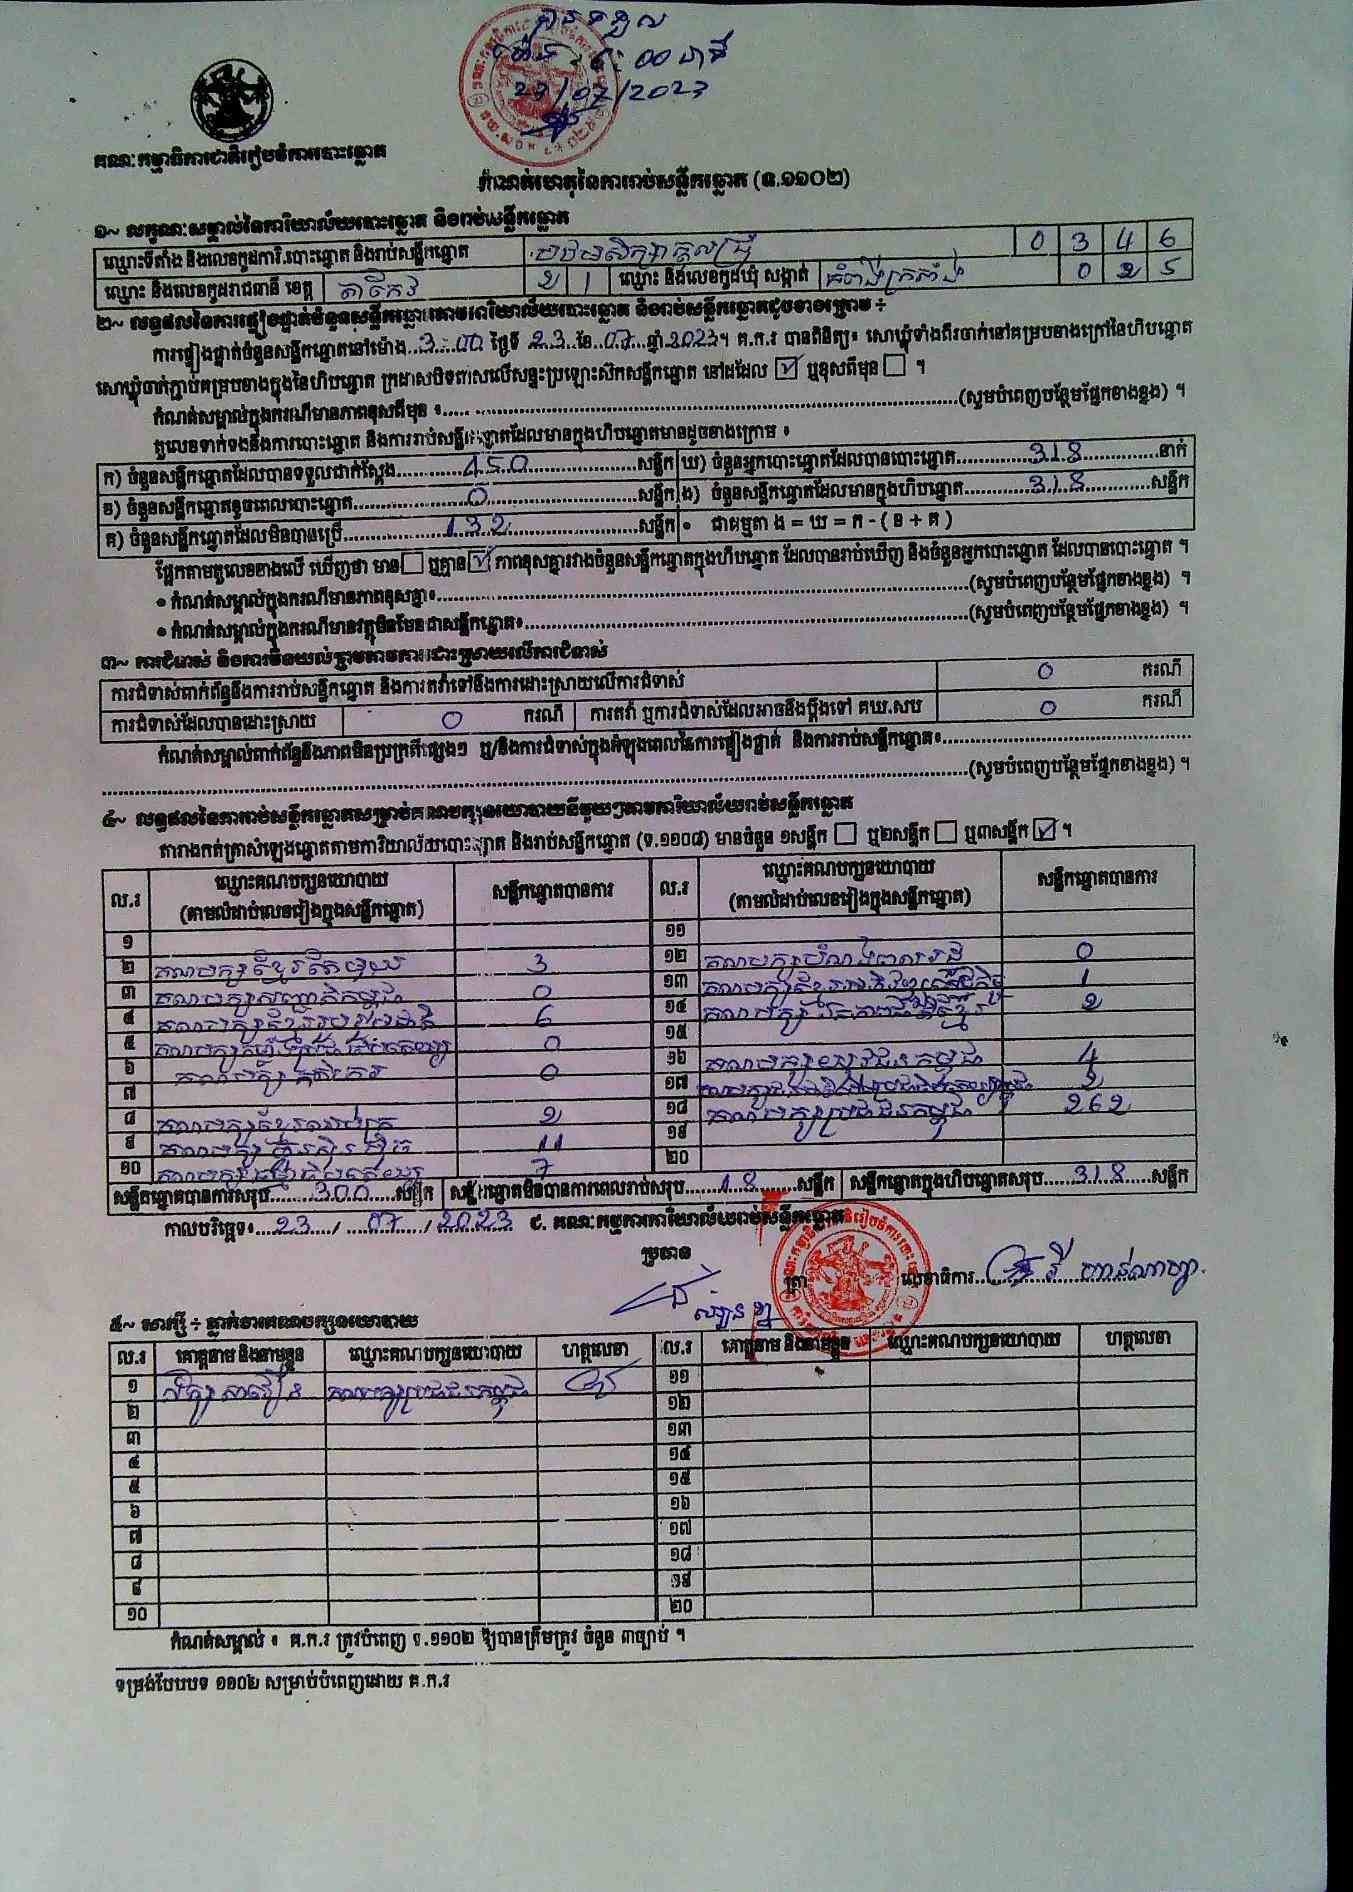 ម៉ោង 6:00 នាទី
23/07/2023
គណៈកម្មាធិការជាតិរៀបចំការបោះឆ្នោត
កំណត់ហេតុនៃការរាប់សន្លឹកឆ្នោត (ទ.១១០២)
១~ លក្ខណៈសម្គាល់នៃការិយាល័យបោះឆ្នោត និងរាប់សន្លឹកឆ្នោត
ឈ្មោះទីតាំង និងលេខកូដការិ.បោះឆ្នោត និងរាប់សន្លឹកឆ្នោត 0 3 4 6
ឈ្មោះ និងលេខកូដរាជធានី ខេត្ត តាកែវ 2 1 ឈ្មោះ និងលេខកូដឃុំ សង្កាត់ 0 2 5
២~ លទ្ធផលនៃការផ្ទៀងផ្ទាត់ចំនួនសន្លឹកឆ្នោតតាមការិយាល័យបោះឆ្នោត និងរាប់សន្លឹកឆ្នោតដូចខាងក្រោម ÷
ការផ្ទៀងផ្ទាត់ចំនួនសន្លឹកឆ្នោតនៅម៉ោង 3:00 ថ្ងៃទី 23 ខែ 07 ឆ្នាំ 2023។ គ.ក.រ បានពិនិត្យ៖ សោឃ្មុំទាំងពីរចាក់នៅគម្របខាងក្រៅនៃហិបឆ្នោត
សោឃ្មុំចាក់ភ្ជាប់គម្របខាងក្នុងនៃហិបឆ្នោត ក្រដាសបិទពាសលើសន្ទះប្រឡោះស៊កសន្លឹកឆ្នោត នៅដដែល ☑ ឬខុសពីមុន ☐ ។
កំណត់សម្គាល់ក្នុងករណីមានភាពខុសពីមុន ៖ (សូមបំពេញបន្ថែមផ្នែកខាងខ្នង) ។
តួលេខទាក់ទងនឹងការបោះឆ្នោត និងការរាប់សន្លឹកឆ្នោតដែលមានក្នុងហិបឆ្នោតមានដូចខាងក្រោម ៖
ក) ចំនួនសន្លឹកឆ្នោតដែលបានទទួលជាក់ស្តែង 450 សន្លឹក ឃ) ចំនួនអ្នកបោះឆ្នោតដែលបានបោះឆ្នោត 318 នាក់
ខ) ចំនួនសន្លឹកឆ្នោតខូចពេលបោះឆ្នោត 0 សន្លឹក ង) ចំនួនសន្លឹកឆ្នោតដែលមានក្នុងហិបឆ្នោត 318 សន្លឹក
គ) ចំនួនសន្លឹកឆ្នោតដែលមិនបានប្រើ 132 សន្លឹក ● ជាធម្មតា ង = ឃ = ក - ( ខ + គ )
ផ្អែកតាមតួលេខខាងលើ ឃើញថា មាន ☐ ឬគ្មាន ☑ ភាពខុសគ្នារវាងចំនួនសន្លឹកឆ្នោតក្នុងហិបឆ្នោត ដែលបានរាប់ឃើញ និងចំនួនអ្នកបោះឆ្នោត ដែលបានបោះឆ្នោត ។
● កំណត់សម្គាល់ក្នុងករណីមានភាពខុសគ្នា៖ (សូមបំពេញបន្ថែមផ្នែកខាងខ្នង) ។
● កំណត់សម្គាល់ក្នុងករណីមានវត្ថុមិនមែនជាសន្លឹកឆ្នោត៖ (សូមបំពេញបន្ថែមផ្នែកខាងខ្នង) ។
៣~ ការជំទាស់ និងការមិនយល់ព្រមតាមការដោះស្រាយលើការជំទាស់
ការជំទាស់ពាក់ព័ន្ធនឹងការរាប់សន្លឹកឆ្នោត និងការតវ៉ាទៅនឹងការដោះស្រាយលើការជំទាស់ 0 ករណី
ការជំទាស់ដែលបានដោះស្រាយ 0 ករណី ការតវ៉ា ឬការជំទាស់ដែលអាចនឹងប្តឹងទៅ គឃ.សប 0 ករណី
កំណត់សម្គាល់ពាក់ព័ន្ធនឹងភាពមិនប្រក្រតីផ្សេងៗ ឬ/និងការជំទាស់ក្នុងអំឡុងពេលនៃការផ្ទៀងផ្ទាត់ និងការរាប់សន្លឹកឆ្នោត៖
(សូមបំពេញបន្ថែមផ្នែកខាងខ្នង) ។
៤~ លទ្ធផលនៃការរាប់សន្លឹកឆ្នោតសម្រាប់គណបក្សនយោបាយនីមួយៗតាមការិយាល័យរាប់សន្លឹកឆ្នោត
តារាងកត់ត្រាសំឡេងឆ្នោតតាមការិយាល័យបោះឆ្នោត និងរាប់សន្លឹកឆ្នោត (ទ.១១០៨) មានចំនួន ១សន្លឹក ☐ ឬ២សន្លឹក ☐ ឬ៣សន្លឹក ☑ ។
ល.រ ឈ្មោះគណបក្សនយោបាយ (តាមលំដាប់លេខរៀងក្នុងសន្លឹកឆ្នោត) សន្លឹកឆ្នោតបានការ ល.រ ឈ្មោះគណបក្សនយោបាយ (តាមលំដាប់លេខរៀងក្នុងសន្លឹកឆ្នោត) សន្លឹកឆ្នោតបានការ
១ ១១
២ គណបក្សខ្មែរតែមួយ 3 ១២ គណបក្ស 0
៣ គណបក្សសញ្ជាតិកម្ពុជា 0 ១៣ គណបក្សខ្មែរ 1
៤ គណបក្សខ្មែររួបរួមជាតិ 6 ១៤ គណបក្ស 2
៥ គណបក្ស 0 ១៥
៦ គណបក្សកសិករ 0 ១៦ គណបក្សយុវជនកម្ពុជា 4
៧ ១៧ 2
៨ គណបក្សខ្មែរ 2 ១៨ គណបក្សប្រជាជនកម្ពុជា 262
៩ គណបក្ស 11 ១៩
១០ គណបក្ស 7 ២០
សន្លឹកឆ្នោតបានការសរុប 300 សន្លឹក សន្លឹកឆ្នោតមិនបានការពេលរាប់សរុប 18 សន្លឹក សន្លឹកឆ្នោតក្នុងហិបឆ្នោតសរុប 318 សន្លឹក
កាលបរិច្ឆេទ៖ 23 / 07 / 2023 ៩. គណៈកម្មការការិយាល័យរាប់សន្លឹកឆ្នោត
ប្រធាន
ត្រា លេខាធិការ
៥~ សាក្សី ÷ ភ្នាក់ងារគណបក្សនយោបាយ
ល.រ គោត្តនាម និងនាមខ្លួន ឈ្មោះគណបក្សនយោបាយ ហត្ថលេខា ល.រ គោត្តនាម និងនាមខ្លួន ឈ្មោះគណបក្សនយោបាយ ហត្ថលេខា
១ គណបក្សប្រជាជនកម្ពុជា ១១
២ ១២
៣ ១៣
៤ ១៤
៥ ១៥
៦ ១៦
៧ ១៧
៨ ១៨
៩ ១៩
១០ ២០
កំណត់សម្គាល់ ៖ គ.ក.រ ត្រូវបំពេញ ទ.១១០២ ឱ្យបានត្រឹមត្រូវ ចំនួន ៣ច្បាប់ ។
ទម្រង់បែបបទ ១១០២ សម្រាប់បំពេញដោយ គ.ក.រ